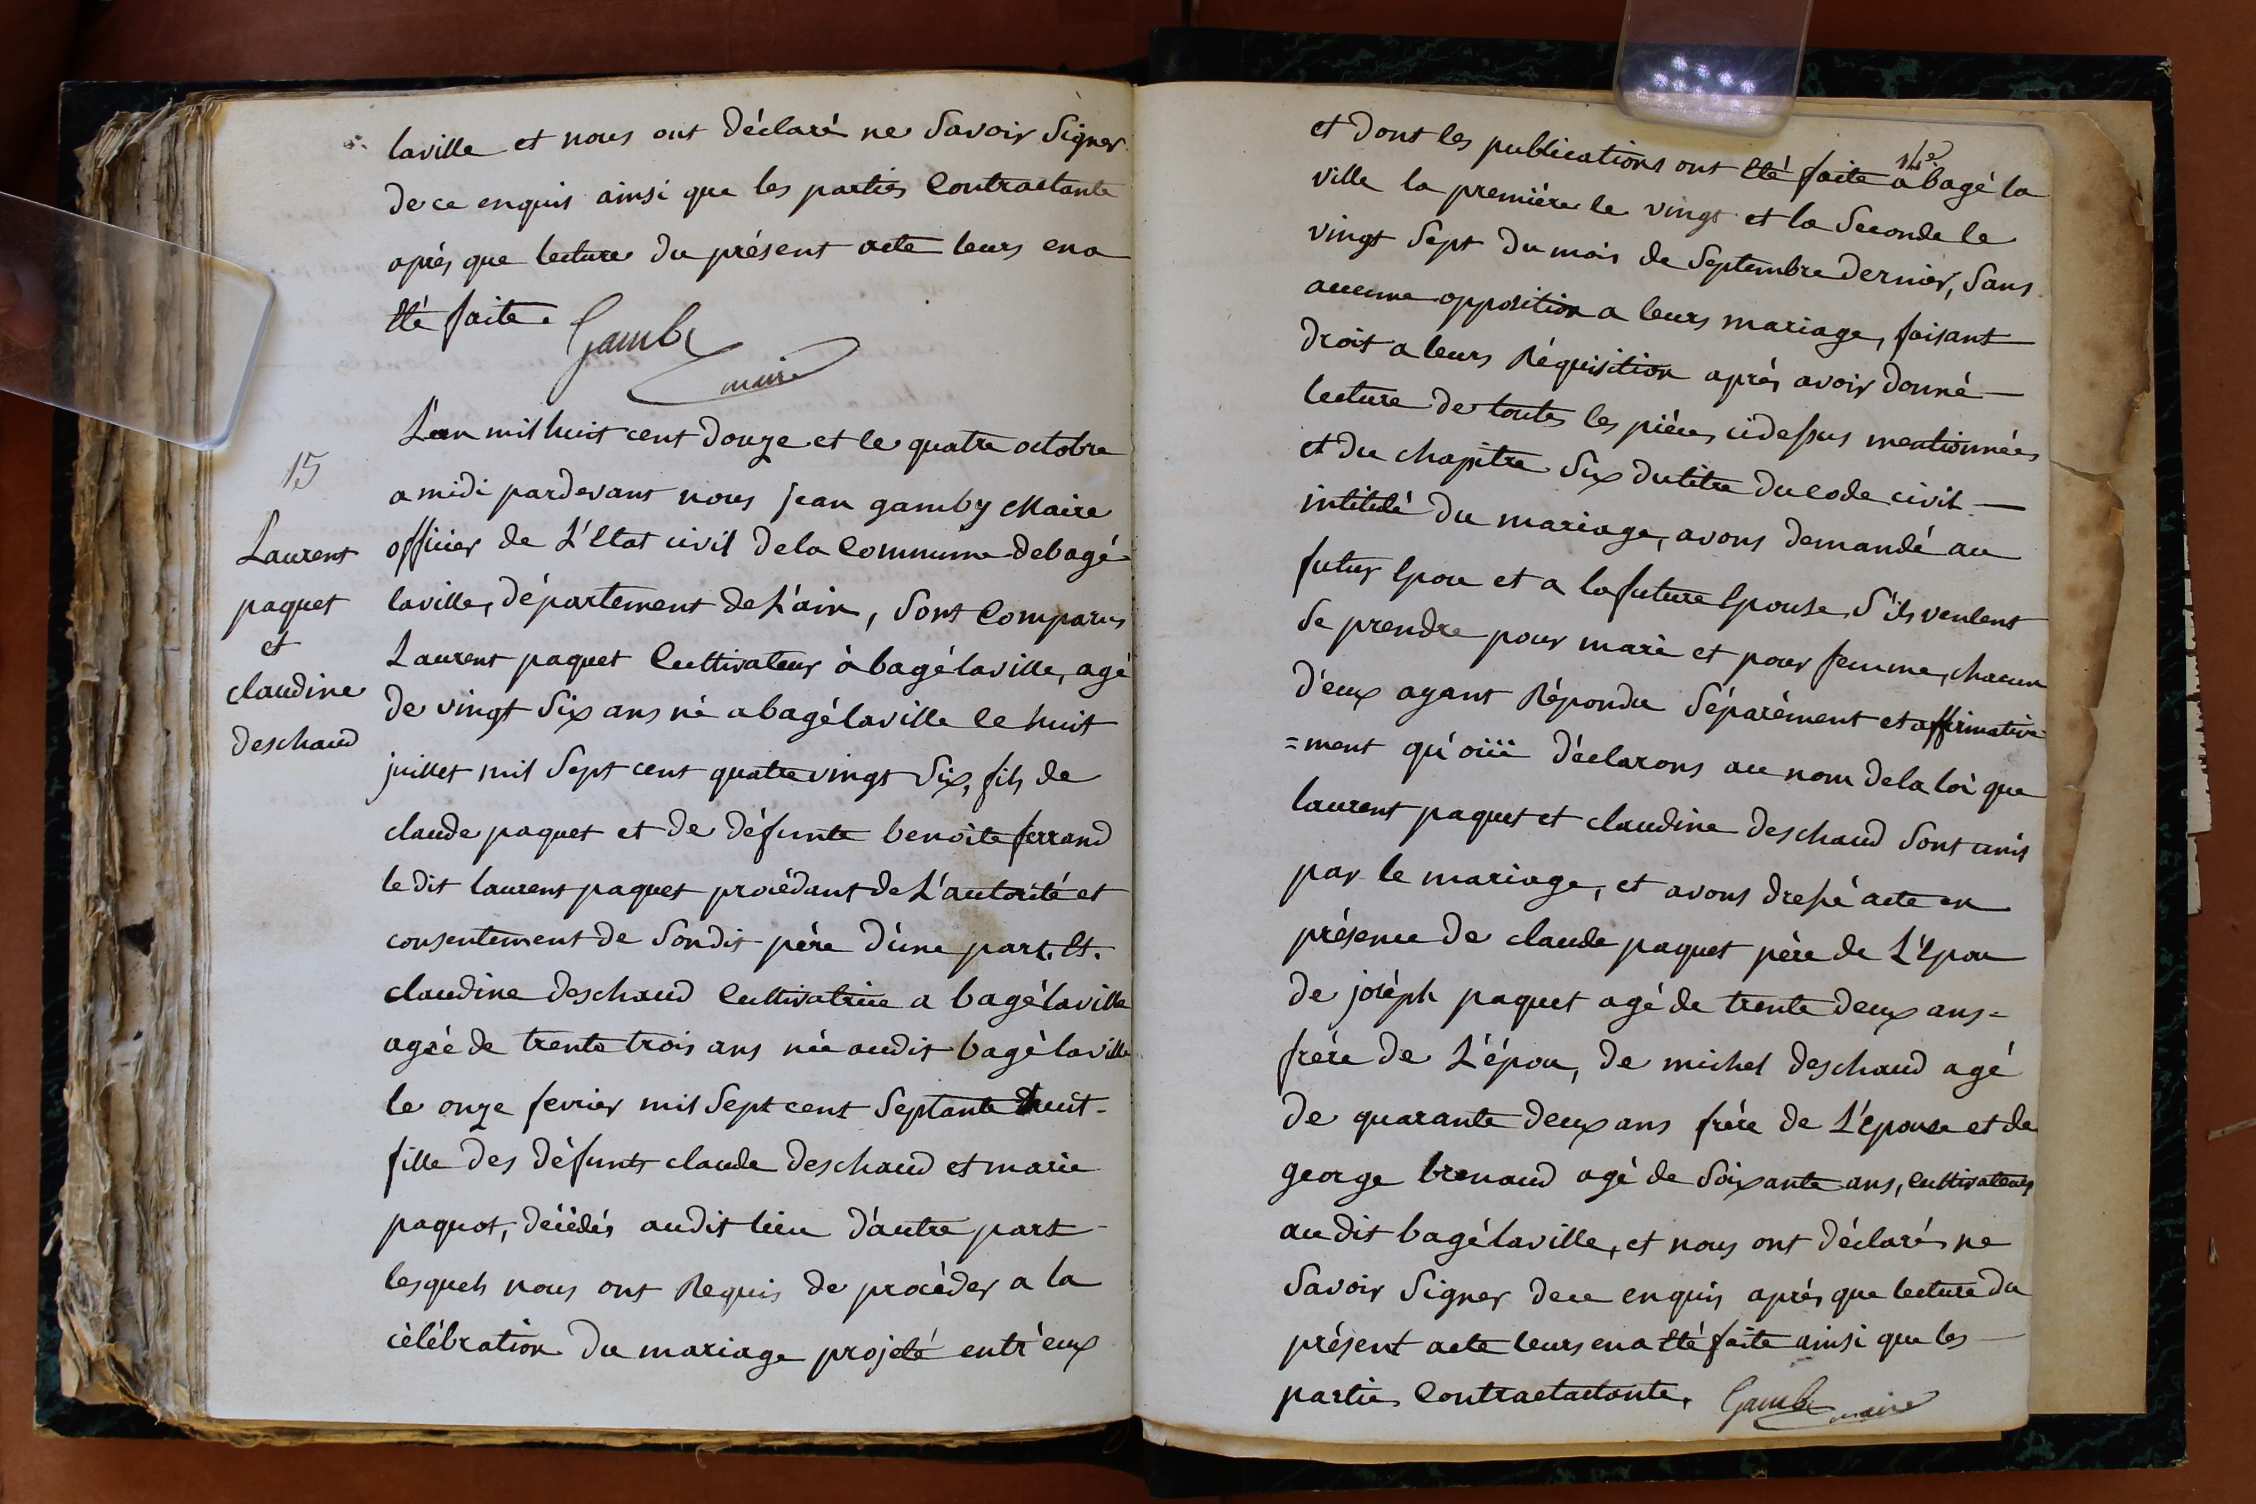 laville et nous ont déclaré ne Savoir Signer
de ce enquis ainsi que les parties Contractante
aprés que lecture du présent acte leurs en a
Eté faite.
Gamby
maire
15
Laurent
paquet
et
claudine
deschaud
L'an mil huit cent douze et le quatre octobre
a midi pardevant nous jean gamby Maire
officier de L'Etat civil dela Commune debagé
laville, département de L'ain, Sont Comparus
Laurent paquet Cultivateur à bagélaville, agé
de vingt Six ans né a bagélaville le huit
juillet mil Sept cent quatre vingt Six, fils de
claude paquet et de défunte benoite ferrand
le dit laurent paquet procédant de L'autorité et
consentement de Son dit pére d'une part. Et.
claudine deschaud Cultivatrice a bagélaville
agée de trente trois ans née audit bagélaville
le onze fevrier mil Sept cent Septante huit-
fille des défunts claude deschaud et marie
paquot, décédés audit lieu d'autre part-
lesquels nous ont Requis de procéder a la
célébration du mariage projeté entr'eux
14e
et dont les publications ont Eté faite a bagé la
ville la premiére le vingt et la Seconde le
vingt Sept du mois de Septembre dernier, Sans
aucune opposition a leurs mariage, faisant
droit a leurs Réquisition aprés avoir donné —
lecture de toutes les piéces cidessus mentionnées
et du chapitre Six du titre du Code civil —
intitulé du mariage, avons demandé au
futur Epou et a la future Epouse, S'ils veulent
Se prendre pour mari et pour femme, chacun
d'eux ayant Répondu Séparément et affirmative
=ment qu'oüi déclarons au nom dela loi que
laurent paquet et claudine deschaud Sont unis
par le mariage, et avons dressé acte en
présence de claude paquet pére de L'Epou
de joséph paquet agé de trente deux ans=
frére de L'épou, de michel deschaud agé
de quarante deux ans frére de L'épouse et de
george brenaud agé de Soixante ans, Cultivateurs
au dit bagélaville, et nous ont déclarés ne
Savoir Signer de ce enquis aprés que lecture du
présent acte leurs en a Eté faite ainsi que les —
parties Contractactante.
Gamby maire